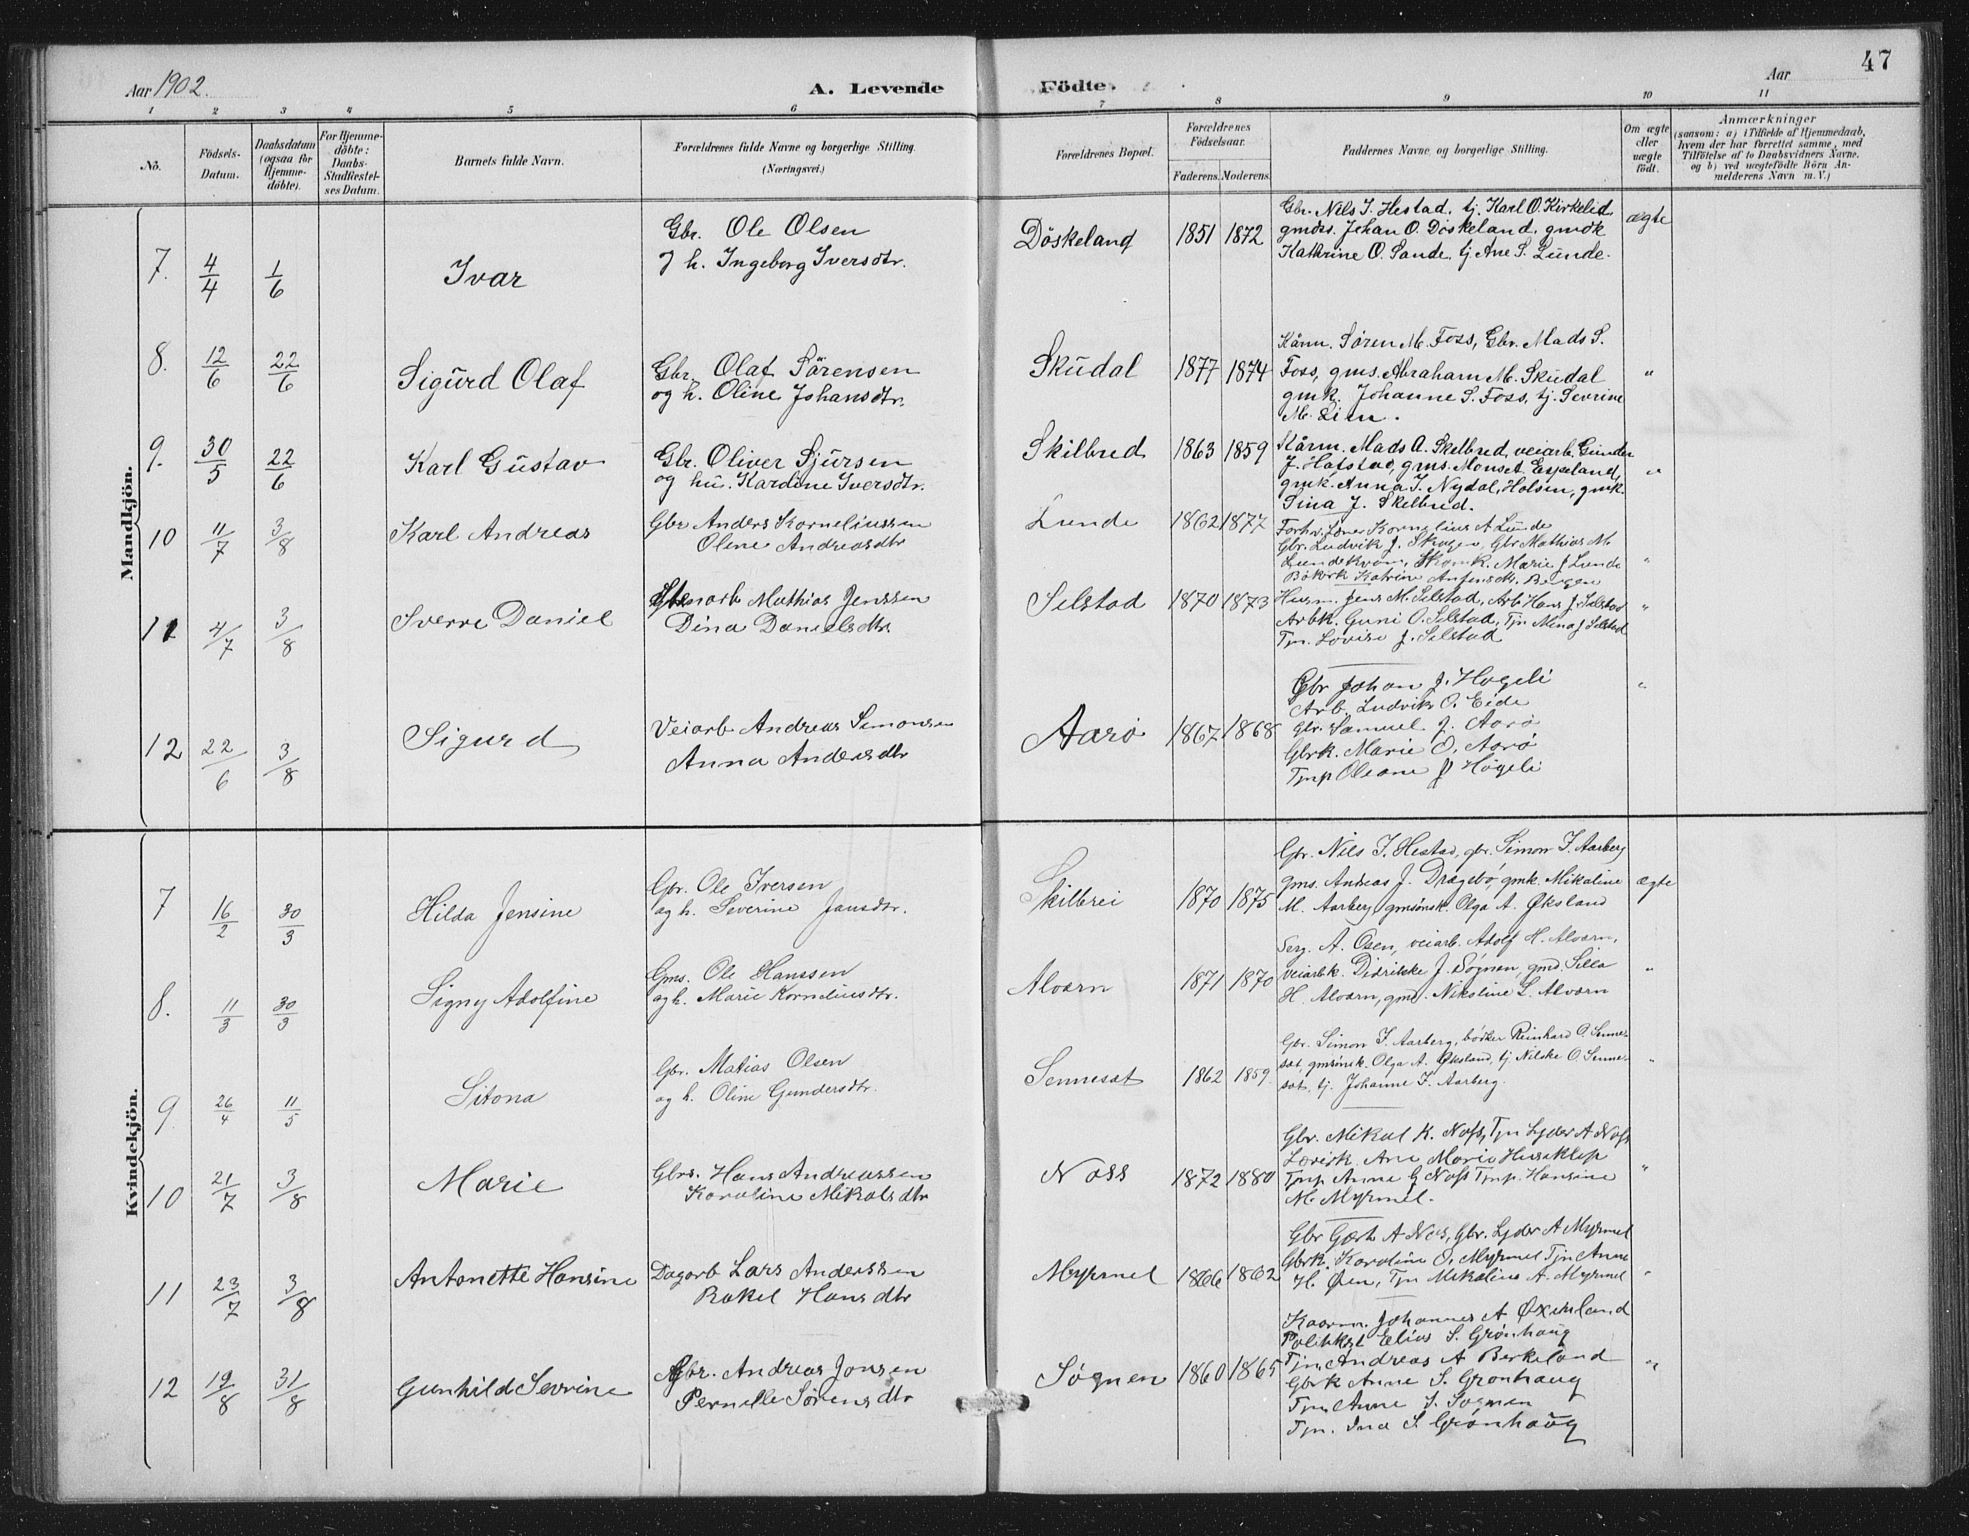 Aar 1902.
A. Levende
Födte.
Aar
47
1 2 3 4 5 6 7 8 9 10 11
No.
Födsels-
Datum.
Daabsdatum
(ogsaa for
Hjemme-
döbte).
For Hjemme-
döbte:
Daabs-
Stadfæstel-
ses Datum.
Barnets fulde Navn.
Forældrenes fulde Navne og borgerlige Stilling.
(Næringsvei.)
Forældrenes Bopæl.
Forældrenes
Födselsaar.
Faderens. Moderens.
Faddernes Navne og borgerlige Stilling.
Om ægte
eller
uægte
födt.
Anmærkninger
(saasom: a) i Tilfælde af Hjemmedaab,
hvem der har forrettet samme, med
Tilföielse af to Daabsvidners Navne,
og b) ved uægtefödte Börn An-
melderens Navn m. V.)
Mandkjön.
7. 4/4 1/6 Ivar
Gbr. Ole Olsen
Ingeborg Iversdtr.
Döskeland 1851 1872
Gbr. Nils J. Hestad, tj. Karl O. Kirkelid
gmds. Johan O. Döskeland, gmdk
Kathrine O. Sande, tj. Ane S. Lunde.
ægte
8. 12/6 22/6 Sigurd Olaf
Gbr. Olaf Sörensen
og h. Oline Johansdtr.
Skudal 1877 1874
Kårm. Søren M. Foss, Gbr. Mads S.
Foss, gms. Abraham M. Skudal
gmk. Johanne S. Foss, tj. Sevrine
M. Lien.
"
9. 30/5 22/6 Karl Gustav
Gbr. Oliver Sjursen
og hu. Kardine Iversdtr.
Skilbred 1863 1859
Kårm. Mads A. Skelbred, veiarb. Gunder
J. Hafstad, gms. Mons A. Espeland,
gmk. Anna I. Nydal, Holsen, gmk.
Sina J. Skelbred.
"
10 11/7 3/8 Karl Andreas
Gbr Anders Korneliussen
Oline Andreasdtr
Lunde 1862 1877
Kornelius A Lunde
Gbr. Ludvik J. Skogen, Gbr Mathias M.
Marie J Lunde
Katrine Bergen
"
11 4/7 3/8 Sverre Daniel
Mathias Jenssen
Dina Danielsdtr.
Selstad 1870 1873
Husm. Jens M. Selstad, Arb Hans J. Selstad
Arbk. Guni O. Selstad, Tjn Mina J Selstad
Tjn. Lovise J. Selstad
"
12 22/6 3/8 Sigurd
Veiarb Andreas Simonsen
Anna Andersdtr
Aarö 1867 1868
Gbr Johan J. Högeli
Arb Ludvik O. Eide
Gbr. Samuel J. Aarö
Gbrk. Marie O. Aarö
Tjnp Oleane J Högeli
"
Kvindekjön.
7 16/2 30/3 Hilda Jensine
Gbr. Ole Iversen
og h. Severine Jansdtr.
Skilbrei 1870 1875
Gbr. Nils J. Hestad, gbr. Simon I. Aarberg
gms. Andreas J. Dragebö, gmk. Mikaline
M. Aarberg, gmsönsk. Olga A. Øksland
ægte
8. 11/3 30/3 Signy Adolfine
Gms. Ole Hanssen
og h. Marie Korneliusdtr.
Alværn 1871 1870
Serg. A. Osen, veiarb. Adolf H. Alværn,
veiarbk. Didrikke J. Sögnen, gmd. Silla
H. Alværn, gmd. Nikoline L. Alværn
"
9 26/4 11/5 Sitona
Gbr. Matias Olsen
og h. Oline Gundersdtr.
Sennesæt 1862 1859.
Gbr. Simon I. Aarberg, bödker Reinhard O. Senne-
sæt, gmsönsk. Olga A. Øksland, tj Nilske O Senne-
sæt, tj. Johanne I. Aarberg.
"
10 21/7 3/8 Marie
Gbrs. Hans Andreassen
Karoline Mikalsdtr
Nøss 1872 1880
Gbr. Mikal K. Nøss, Tjn Lyder A Nøss
Ane Marie Huseklep
Tjnp Anna G Nøss Tjnp. Hansine
M. Myrmel.
"
11 23/7 3/8 Antonette Hansine
Dagarb Lars Anderssen
Rakel Hansdtr
Myrmel 1866 1862
Gbr Gert A Nøss, Gbr. Lyder A Myrmel
Gbrk. Karoline O. Myrmel Tjn Anne
H. Øen, Tjn Mikaline A. Myrmel
"
12 19/8 31/8 Gunhild Sevrine
Gbr. Andreas Jonsen
Pernelle Sörensdtr
Søgnen 1860 1865
Kaarm. Johannes A Øxenland
Elias S. Grönhaug
Tjn. Andreas A Berkeland
Gbrk Anne S. Grönhaug
Tjn. Anne J. Sognen
Tjn. Ina S. Grönhaug
"